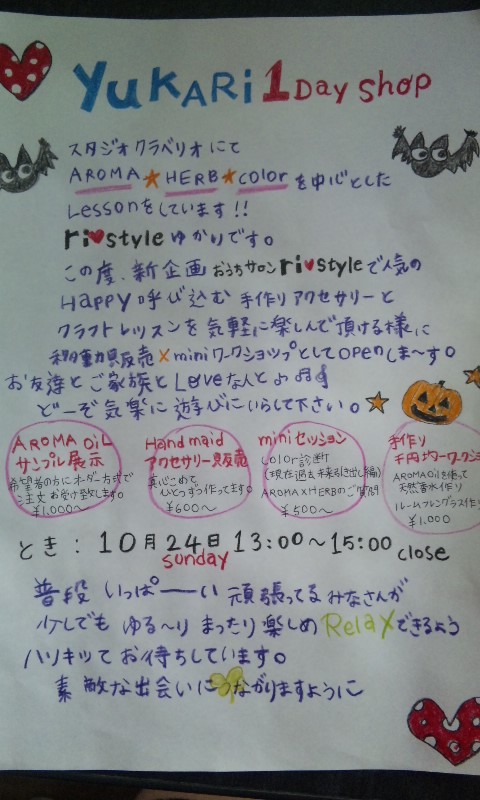 YUKARi 1 Day Shop
スタジオクラベリオにて
AROMA★HERB★color を中心とした
Lessonをしています!!
ri♥style ゆかりです。
この度、新企画 おうちサロン ri♥style で人気の
Happy 呼び込む 手作り アクセサリーと
クラフトレッスンを 気軽に楽しんで頂ける様に
移動販売×miniワークショップとしてopenしま〜す。
お友達と ご家族と Loveな人と♪♫
どーぞ 気楽に 遊びにいらして下さい。
AROMA OiL
サンプル展示
希望者の方に オーダー方式で
ご注文 お受け致します。
¥1,000〜
Hand maid
アクセサリー販売
真心こめて
ひとつずつ作ってます。
¥600〜
mini セッション
color診断
(現在過去未来引き出し編)
AROMA×HERBのご質問
¥500〜
手作り
千円均一ワークショ
AROMA OiLを使って
天然香水作り
ルームフレグランス作り
¥1,000
とき: 10月24日 13:00〜15:00 close
sunday
普段 いっぱーーい 頑張ってる みなさんが
少しでも ゆる〜り まったり 楽しめ Relaxできるよう
ハリキッて お待ちしています。
素敵な出会いに つながりますように